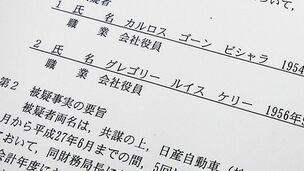 1 氏 名 カルロス ゴーン ビシャラ 1954
職 業 会社役員
2 氏 名 グレゴリー ルイス ケリー 1956年9
職 業 会社役員
第2 被疑事実の要旨
被疑者両名は，共謀の上，日産自動車（株
月から平成27年6月までの間，5回
おいて，同財務局長に
会計年度に